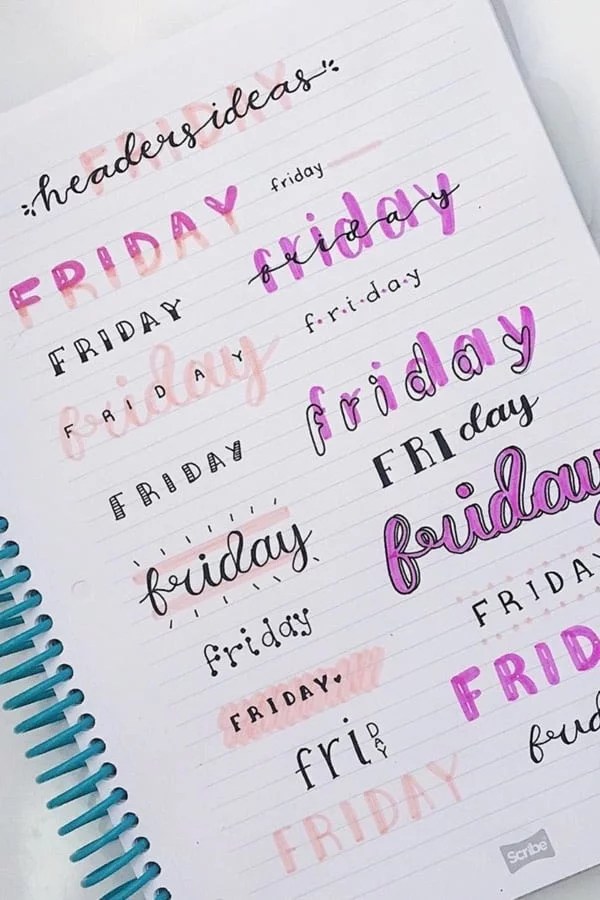 FRIDAY
headers ideas
friday
FRIDAY
friday
friday
FRIDAY
f·r·i·d·a·y
friday
FRIDAY
friday
FRIday
FRIDAY
friday
friday
FRIDAY
friday
FRID
FRIDAY
friDAY
frid
FRIDAY
Scribe